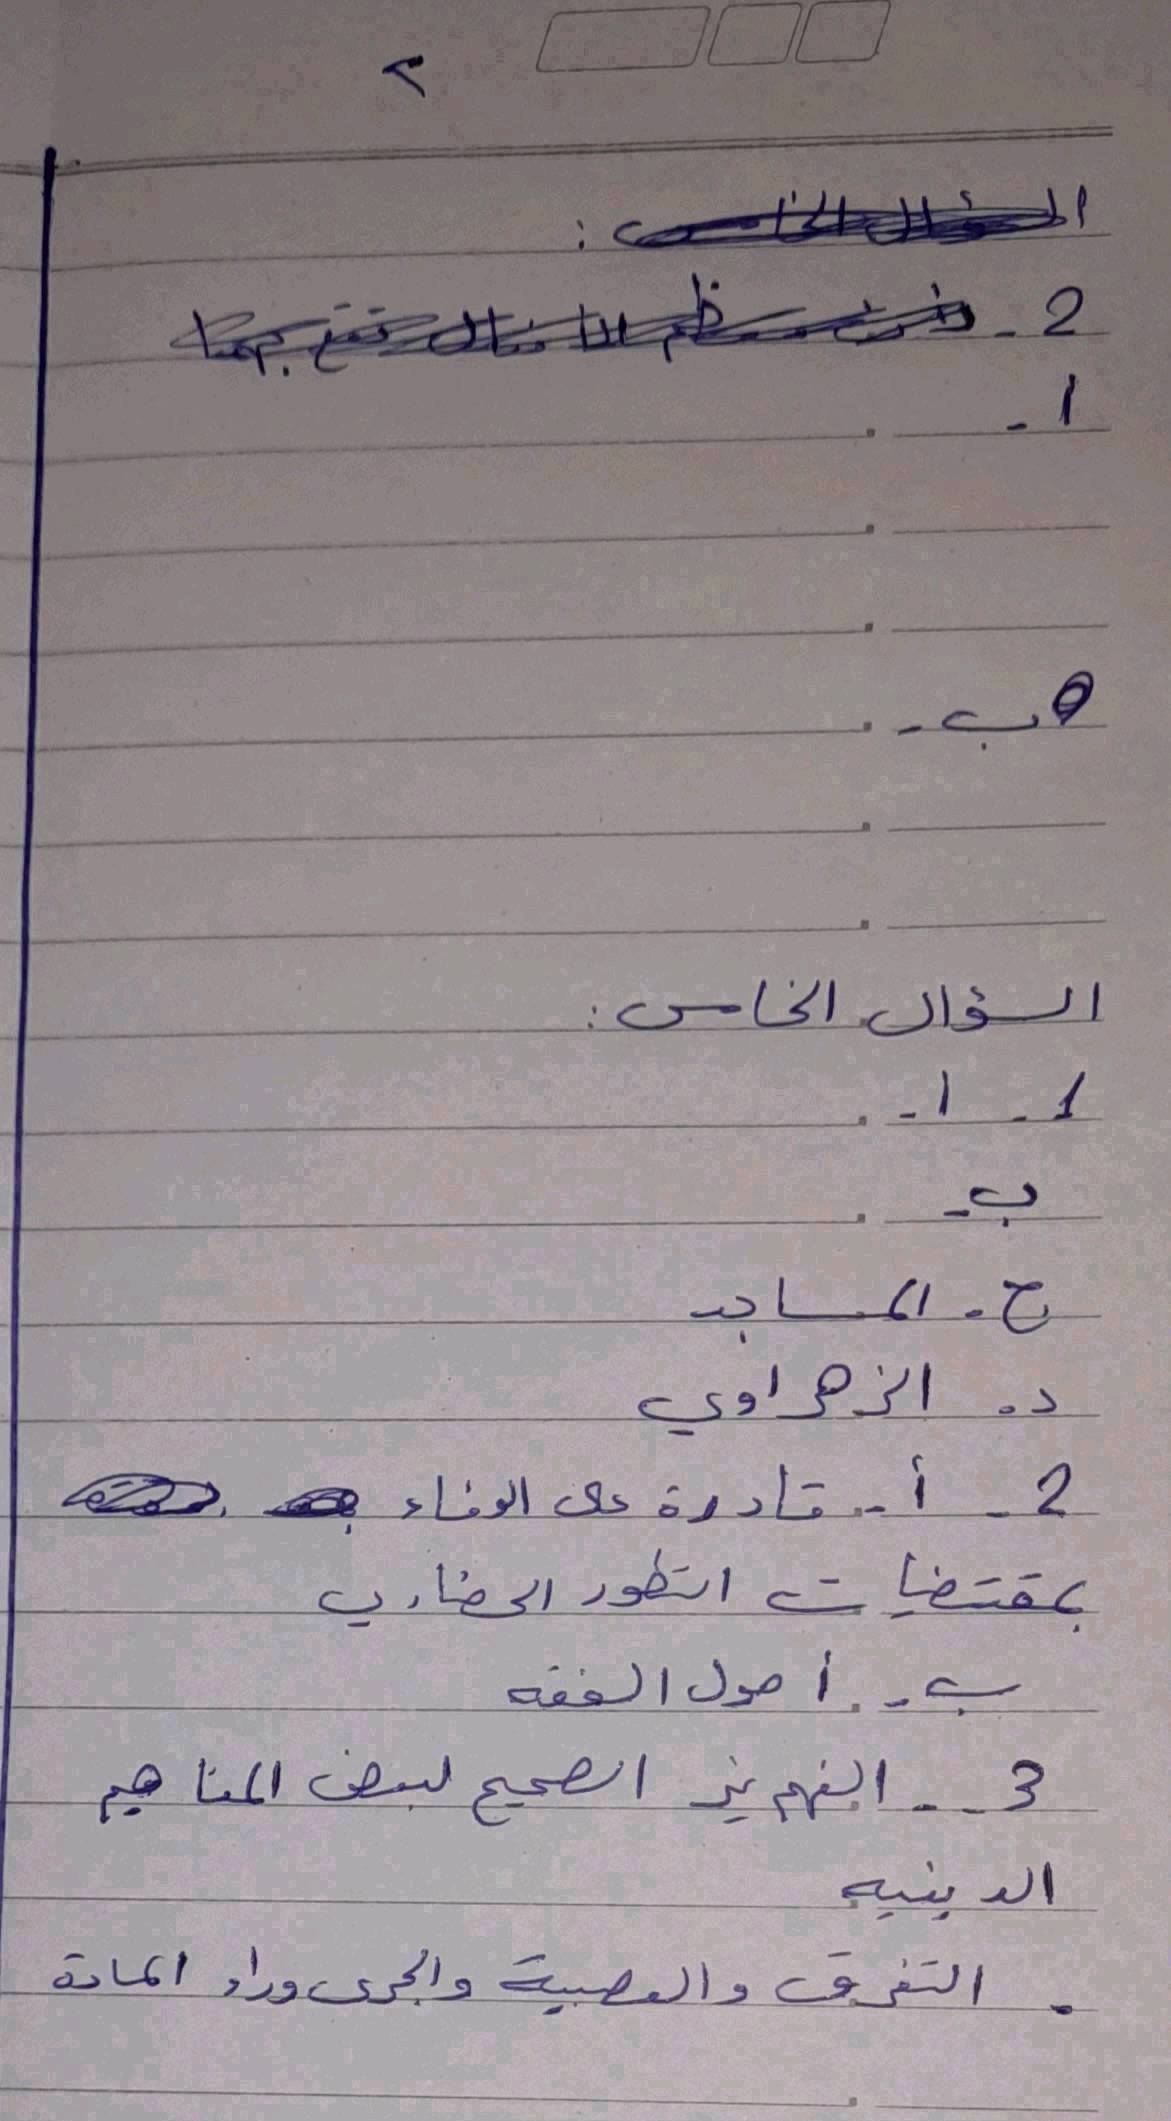 ٢
السؤال الخامس :
2 -
1 -
ب -
السؤال الخامس :
1 - ا -
ب -
ج - المساجد
د - الزهراوي
2 - أ - قادرة على الوفاء
بمقتضيات التطور الحضاري
ب - أصول الفقه
3 - الفهم غير الصحيح لبعض المفاهيم
الدينيه
- التفرق والعصبية والجرى وراء المادة